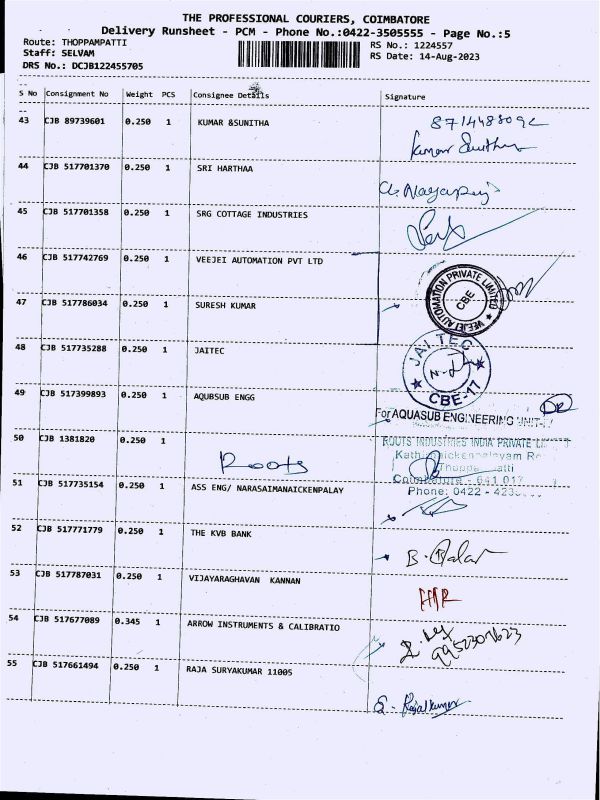 THE PROFESSIONAL COURIERS, COIMBATORE
Delivery Runsheet - PCM - Phone No.:0422-3505555 - Page No.:5
Route: THOPPAMPATTI
Staff: SELVAM
DRS No.: DCJB122455705
RS No.: 1224557
RS Date: 14-Aug-2023
S No Consignment No Weight PCS Consignee Details Signature
43 CJB 89739601 0.250 1 KUMAR &SUNITHA
Kumar Sunitha
44 CJB 517701370 0.250 1 SRI HARTHAA
45 CJB 517701358 0.250 1 SRG COTTAGE INDUSTRIES
46 CJB 517742769 0.250 1 VEEJEI AUTOMATION PVT LTD
VEEJEI AUTOMATION PRIVATE LIMITED
CBE
47 CJB 517786034 0.250 1 SURESH KUMAR
48 CJB 517735288 0.250 1 JAITEC
JAITEC
CBE-17
49 CJB 517399893 0.250 1 AQUBSUB ENGG
For AQUASUB ENGINEERING UNIT-
50 CJB 1381820 0.250 1
Roots
ROOTS INDUSTRIES INDIA PRIVATE
Coimbatore - 641 017
Phone: 0422 -
51 CJB 517735154 0.250 1 ASS ENG/ NARASAIMANAICKENPALAY
52 CJB 517771779 0.250 1 THE KVB BANK
53 CJB 517787031 0.250 1 VIJAYARAGHAVAN KANNAN
54 CJB 517677089 0.345 1 ARROW INSTRUMENTS & CALIBRATIO
9952301623
55 CJB 517661494 0.250 1 RAJA SURYAKUMAR 11005